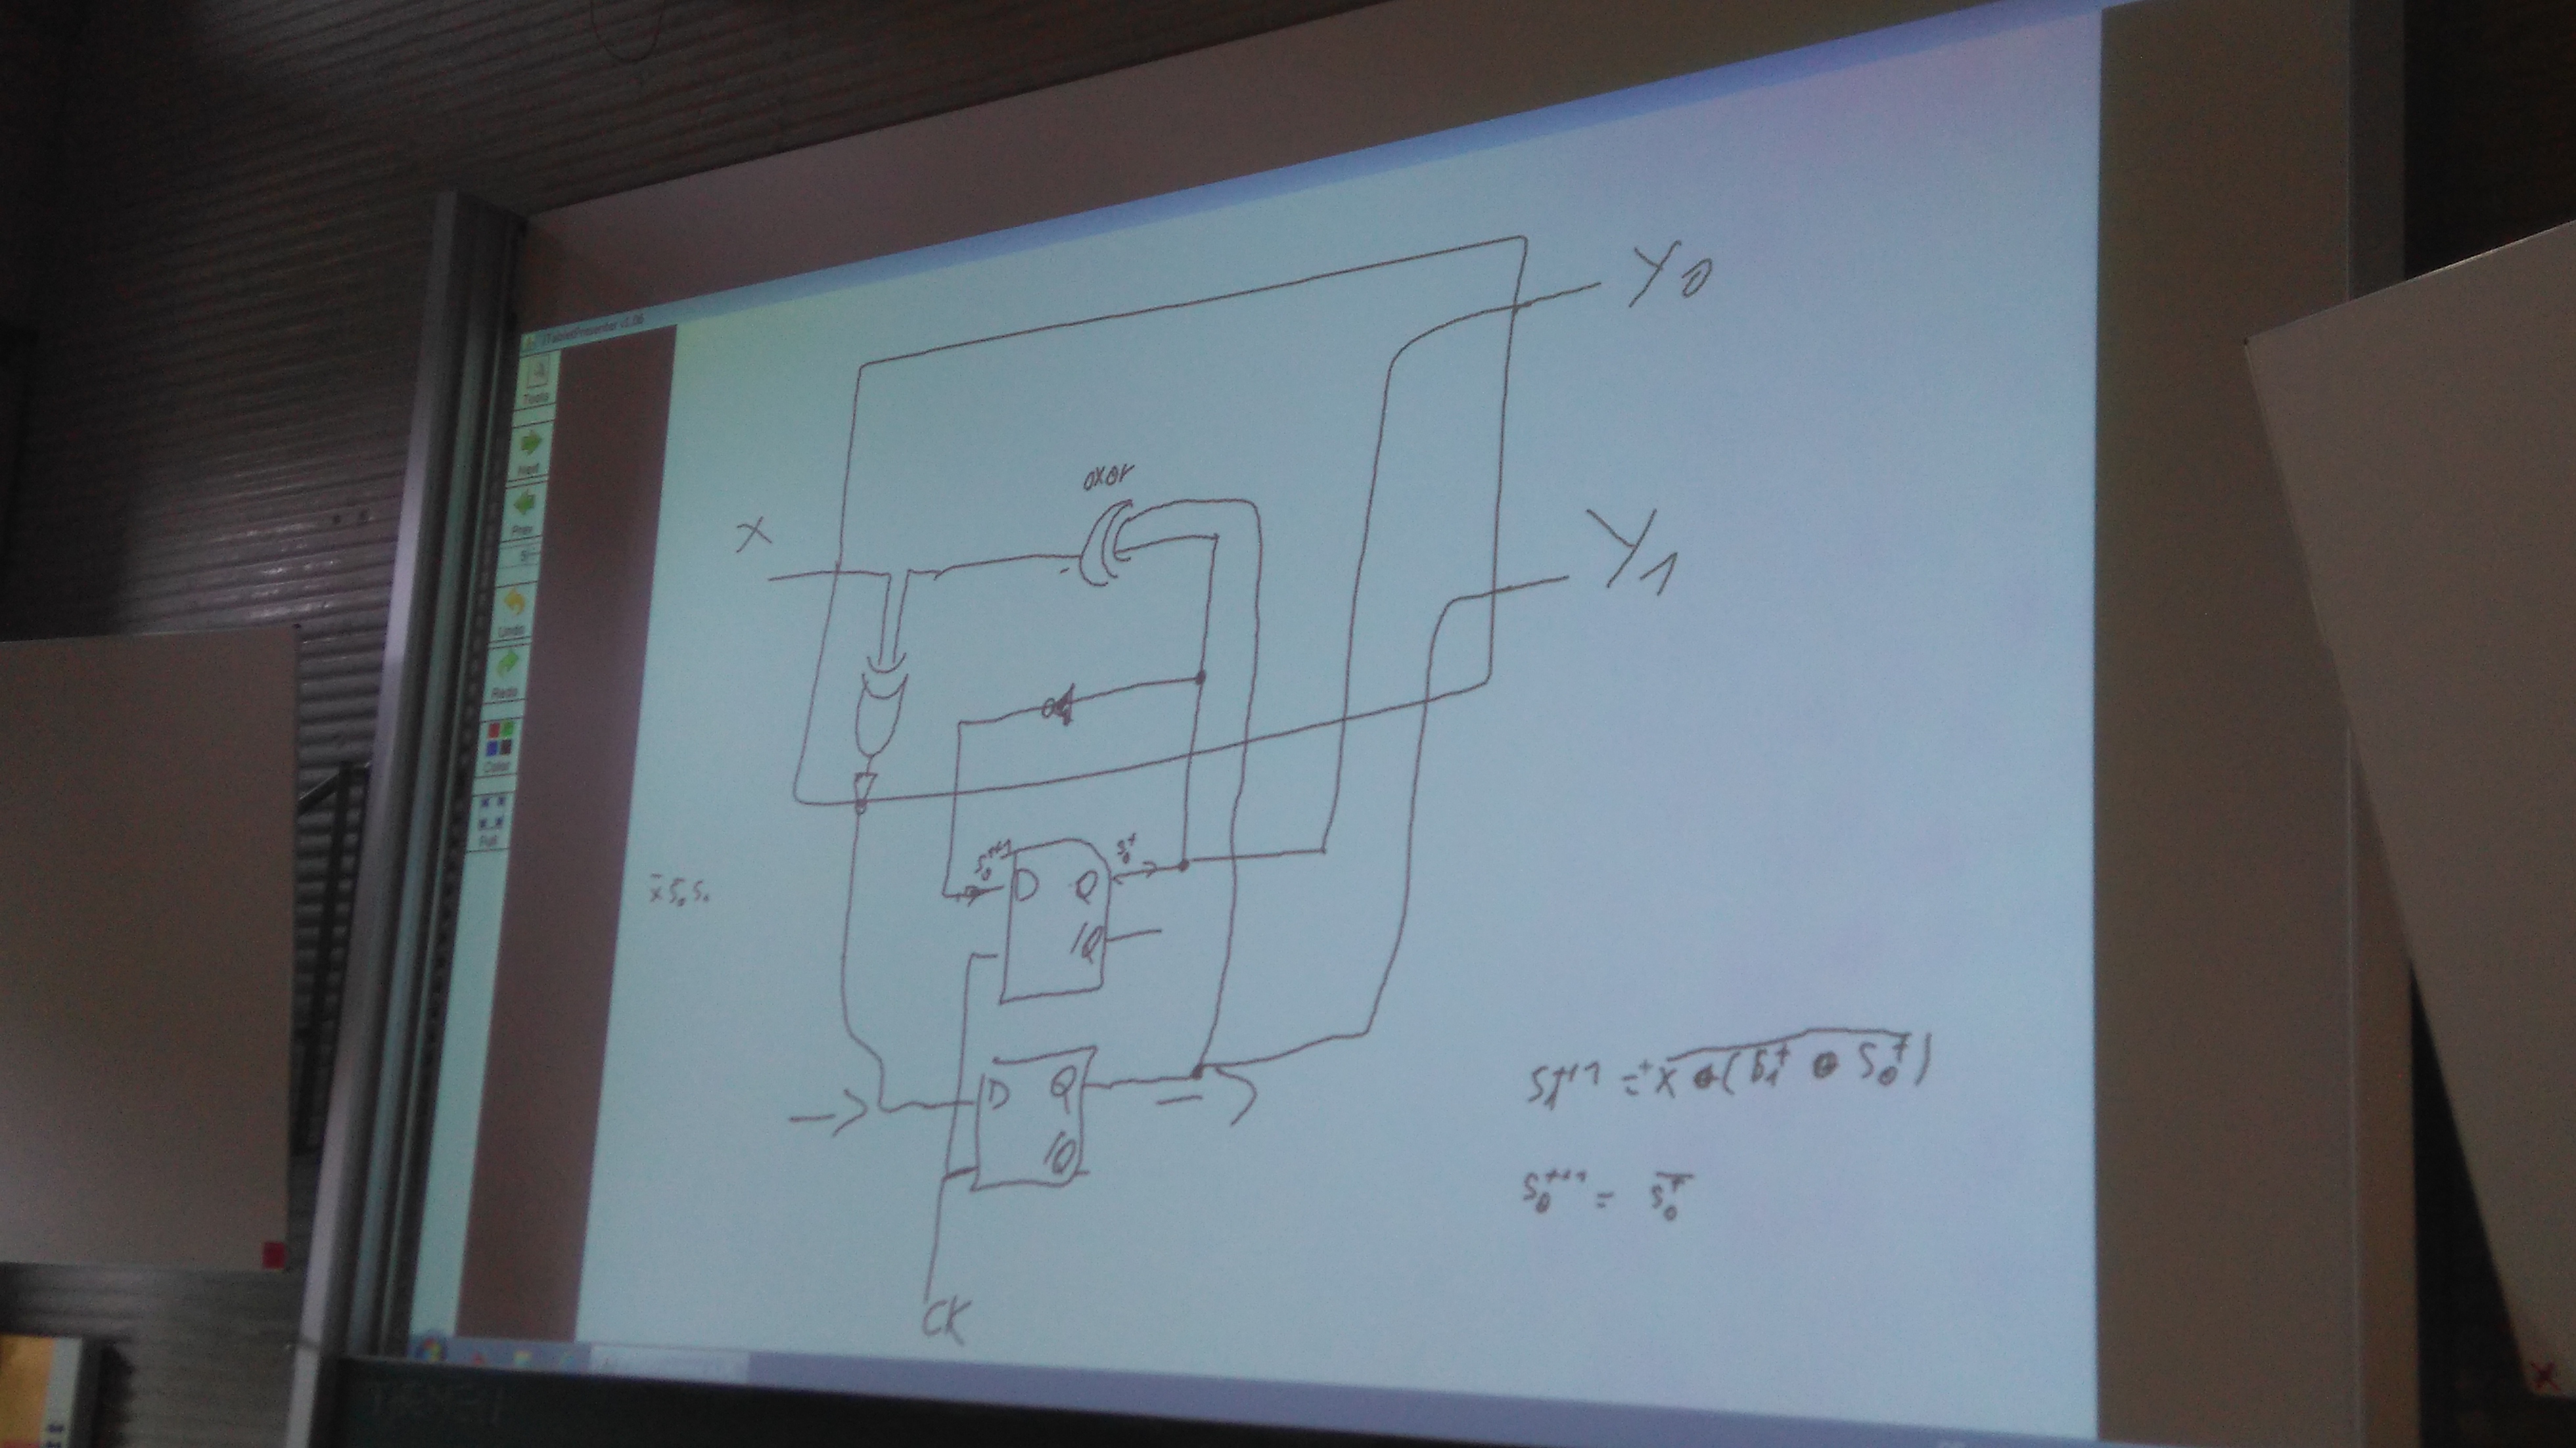 TabletPresenter v1.06
Tools
Next
Prev
5
Undo
Redo
Color
Full
Y0
oxor
X
Y1
S0^t+1
S0^t
D Q
/Q
D Q
/Q
CK
S1^t+1 = x ⊕ (S1^t ⊕ S0^t)
S0^t+1 = S̅0^t